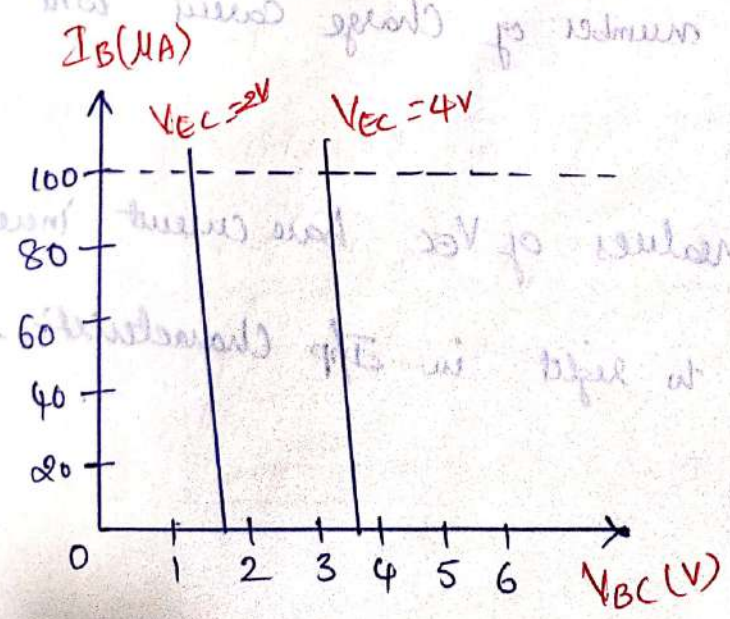 I_B(μA)
V_EC=2V V_EC=4V
100
80
60
40
20
0
1 2 3 4 5 6
V_BC(V)